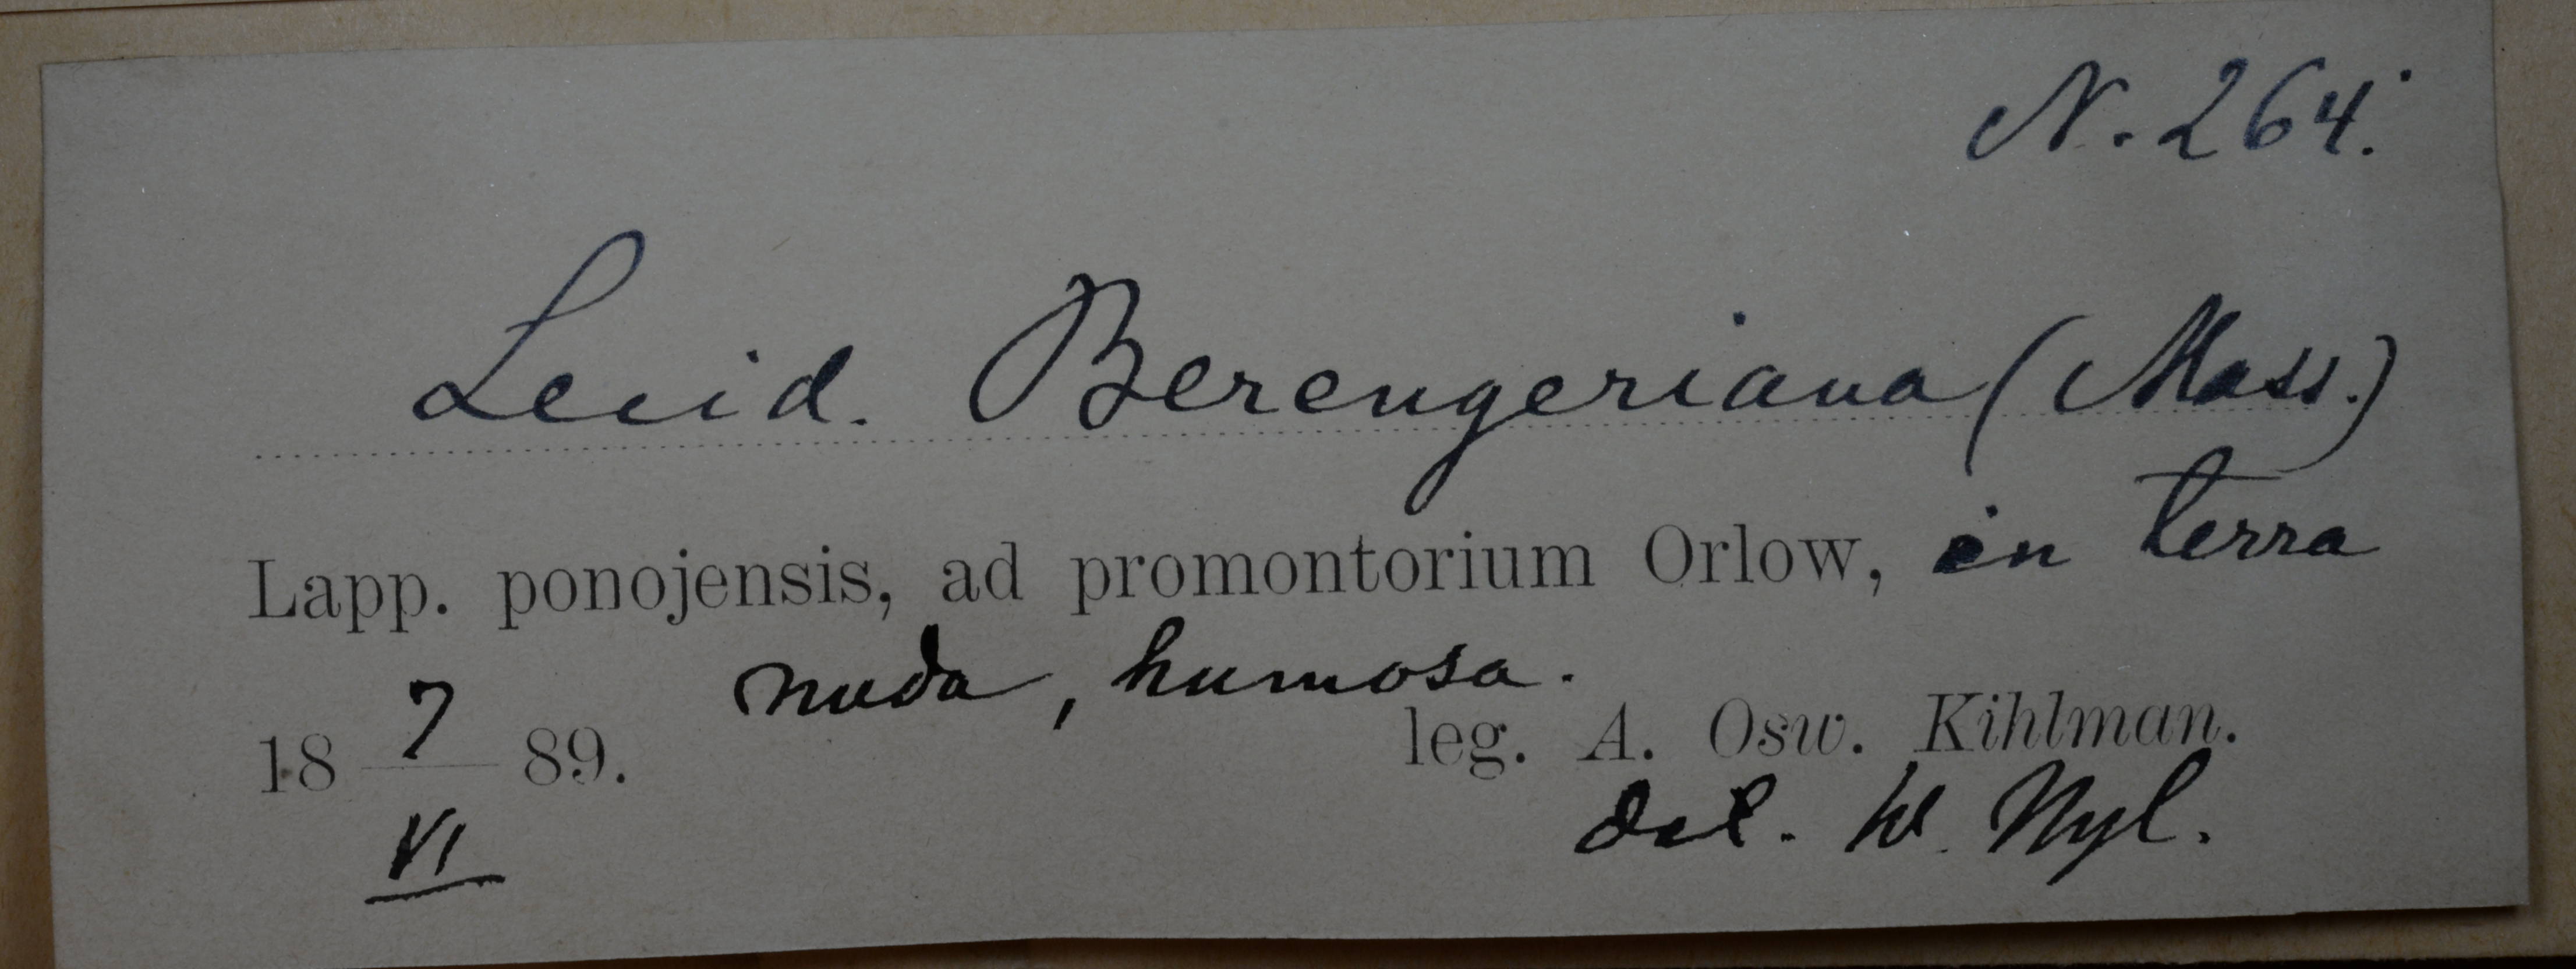 N. 264.
Lecid. Berengeriana (Mass.)
Lapp. ponojensis, ad promontorium Orlow, in terra
nuda, humosa.
18 7/VI 89.
leg. A. Osw. Kihlman.
det. W. Nyl.